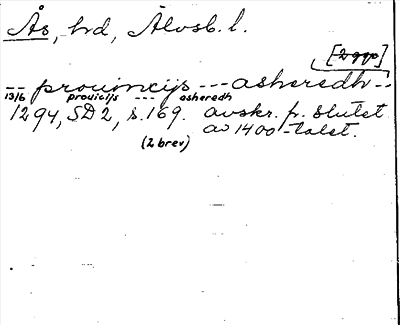 Ås, hd, Älvsb. l.
[2 ggr]
-- prouincijs --- asheredh --
13/6 prouicijs --- asheredh
1294, SD 2, s. 169. avskr. fr. slutet
(2 brev) av 1400-talet.